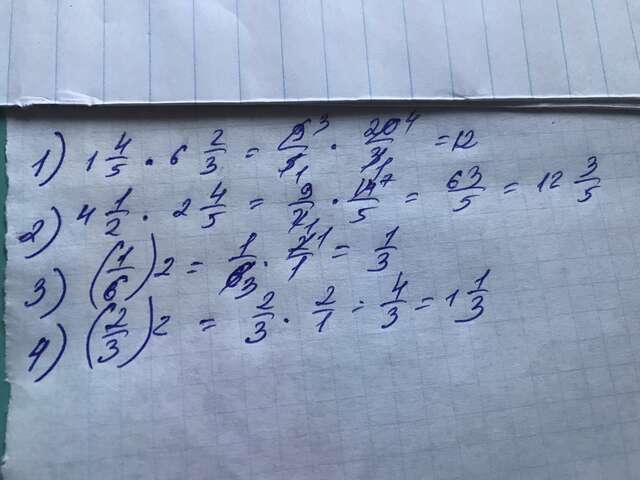 1) 1 4/5 · 6 2/3 = 9³/5₁ · 20⁴/3₁ = 12
2) 4 1/2 · 2 4/5 = 9/2₁ · 14⁷/5 = 63/5 = 12 3/5
3) (1/6)2 = 1/6₃ · 2¹/1 = 1/3
4) (2/3)2 = 2/3 · 2/1 = 4/3 = 1 1/3